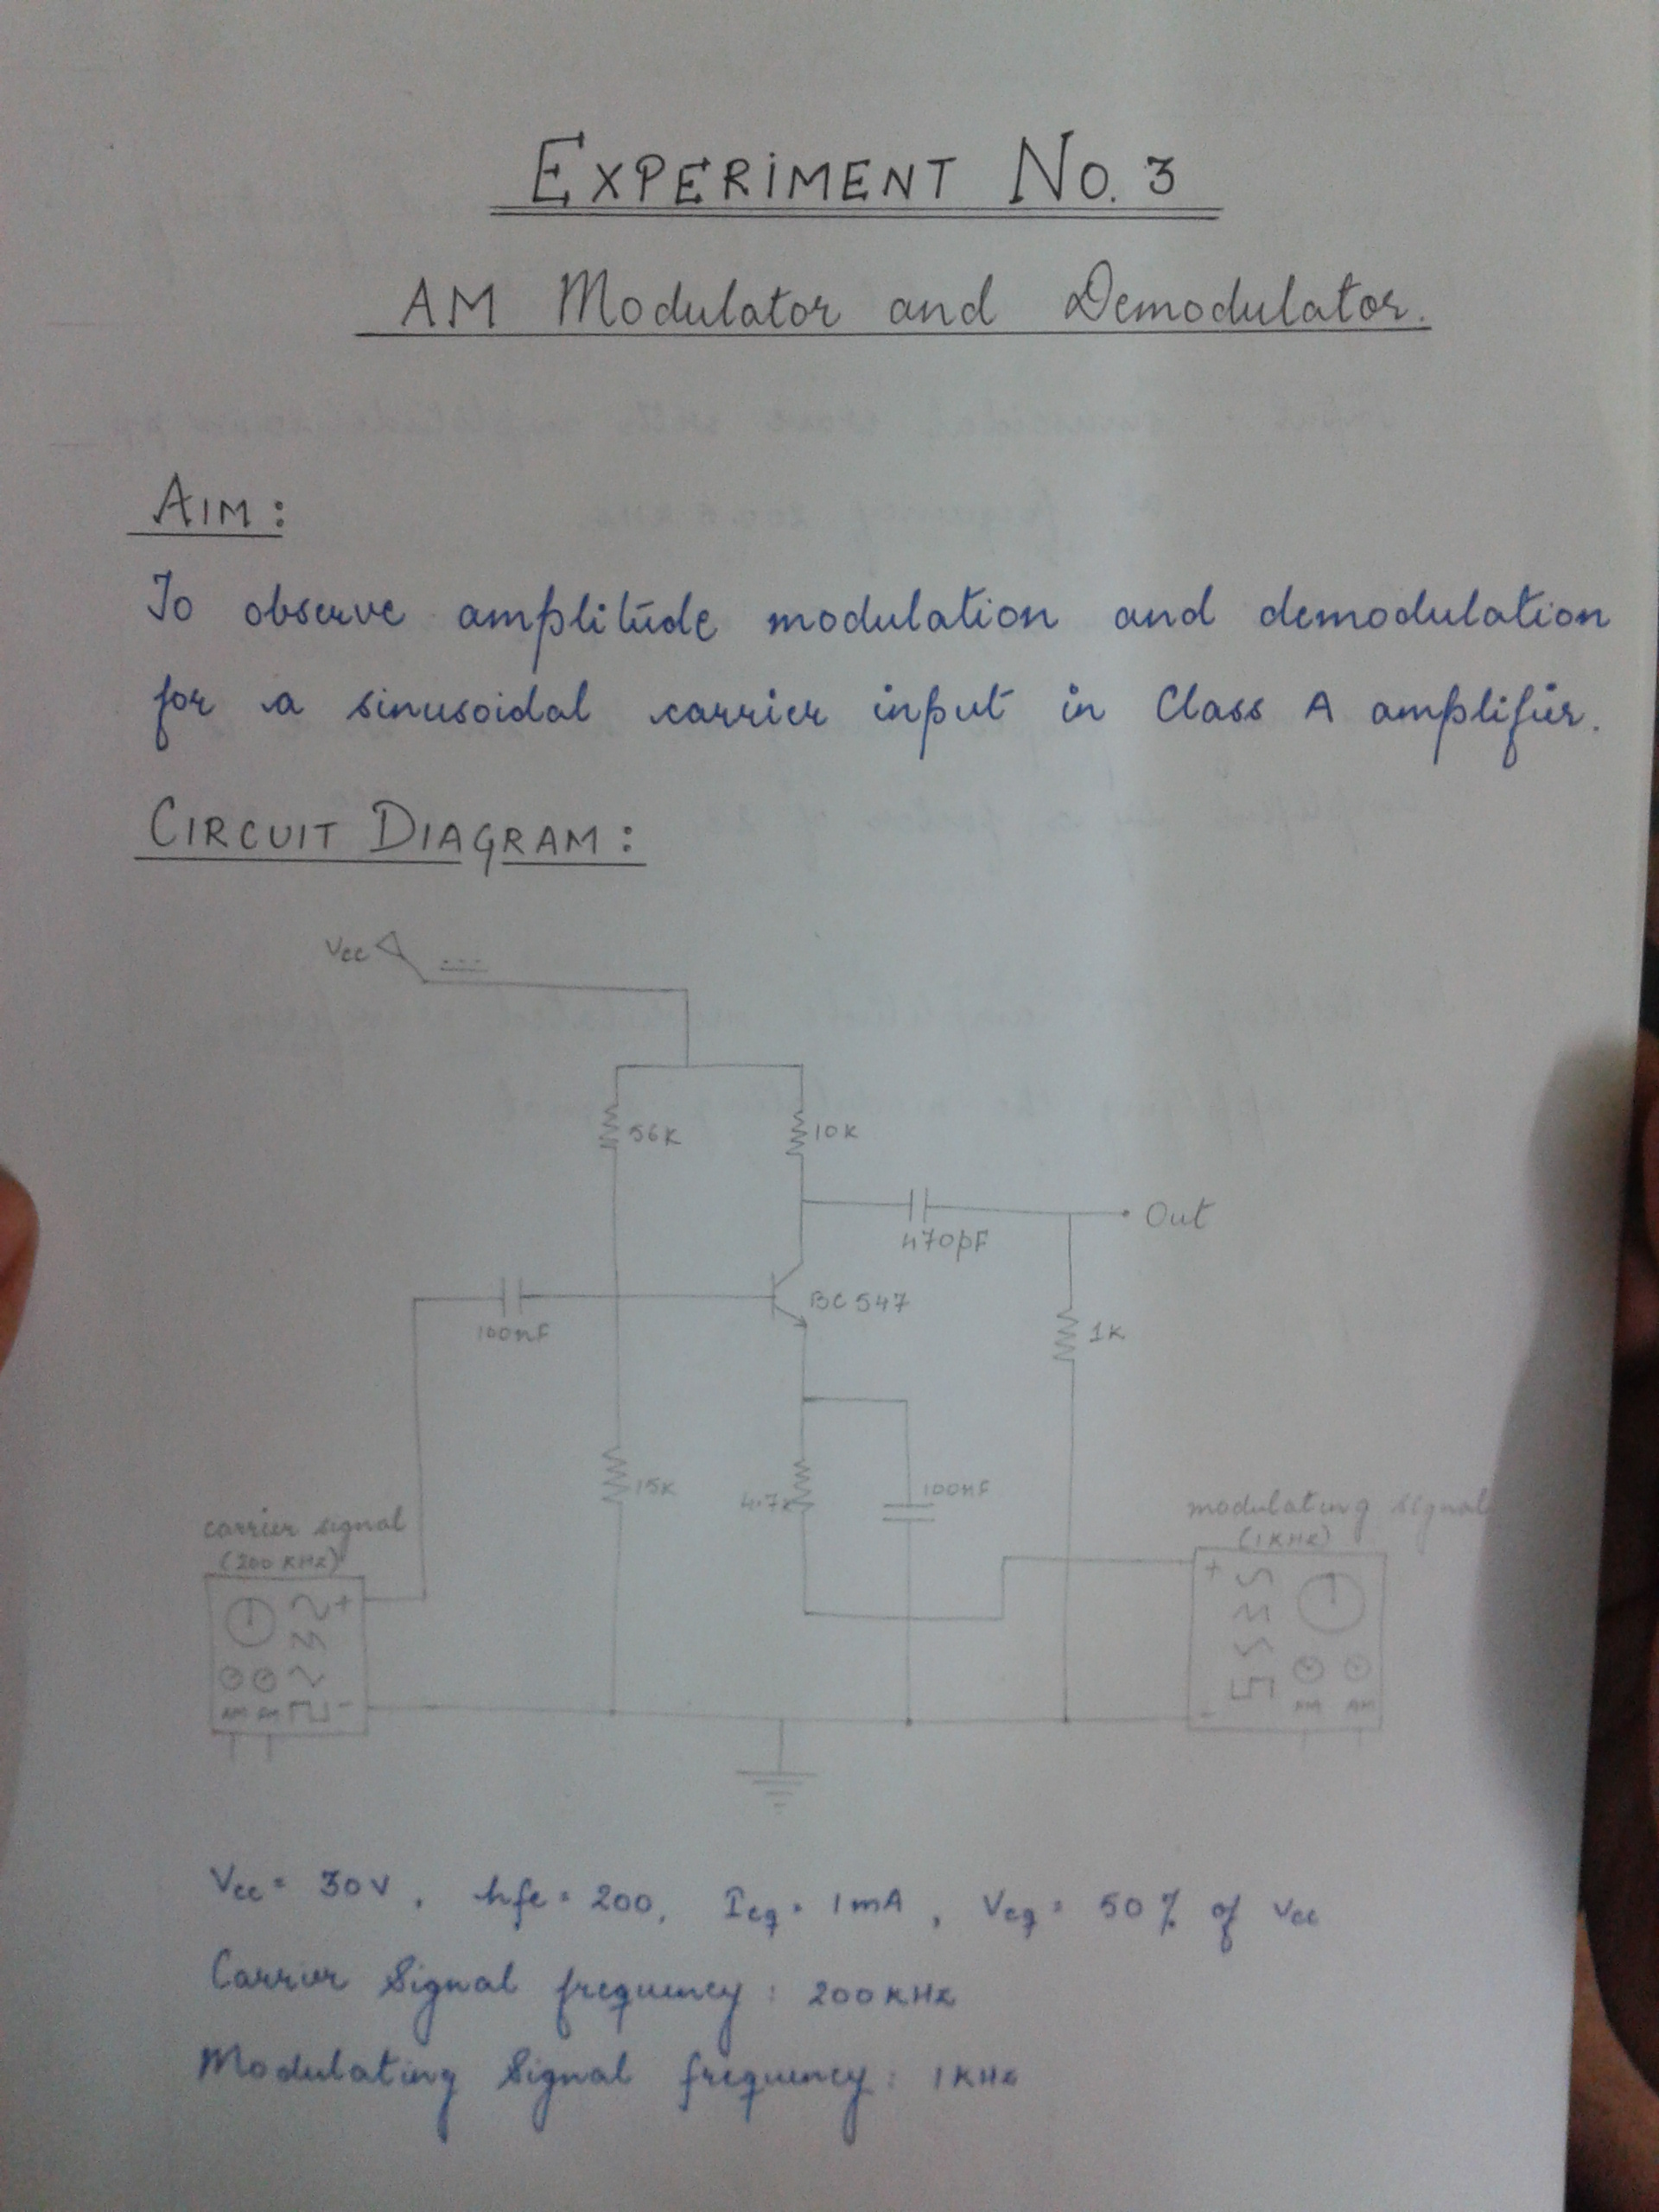 EXPERIMENT NO. 3
AM Modulator and Demodulator.
AIM:
To observe amplitude modulation and demodulation
for a sinusoidal carrier input in Class A amplifier.
CIRCUIT DIAGRAM:
Vcc
56K
10K
Out
470pF
BC547
100nF
1K
15K
4.7K
100nF
modulating signal
(1KHz)
carrier signal
(200 KHz)
+
+
-
-
AM FM
FM AM
Vcc = 30V, hfe = 200, Icq = 1mA, Vcq = 50% of Vcc
Carrier Signal frequency: 200KHz
Modulating Signal frequency: 1KHz